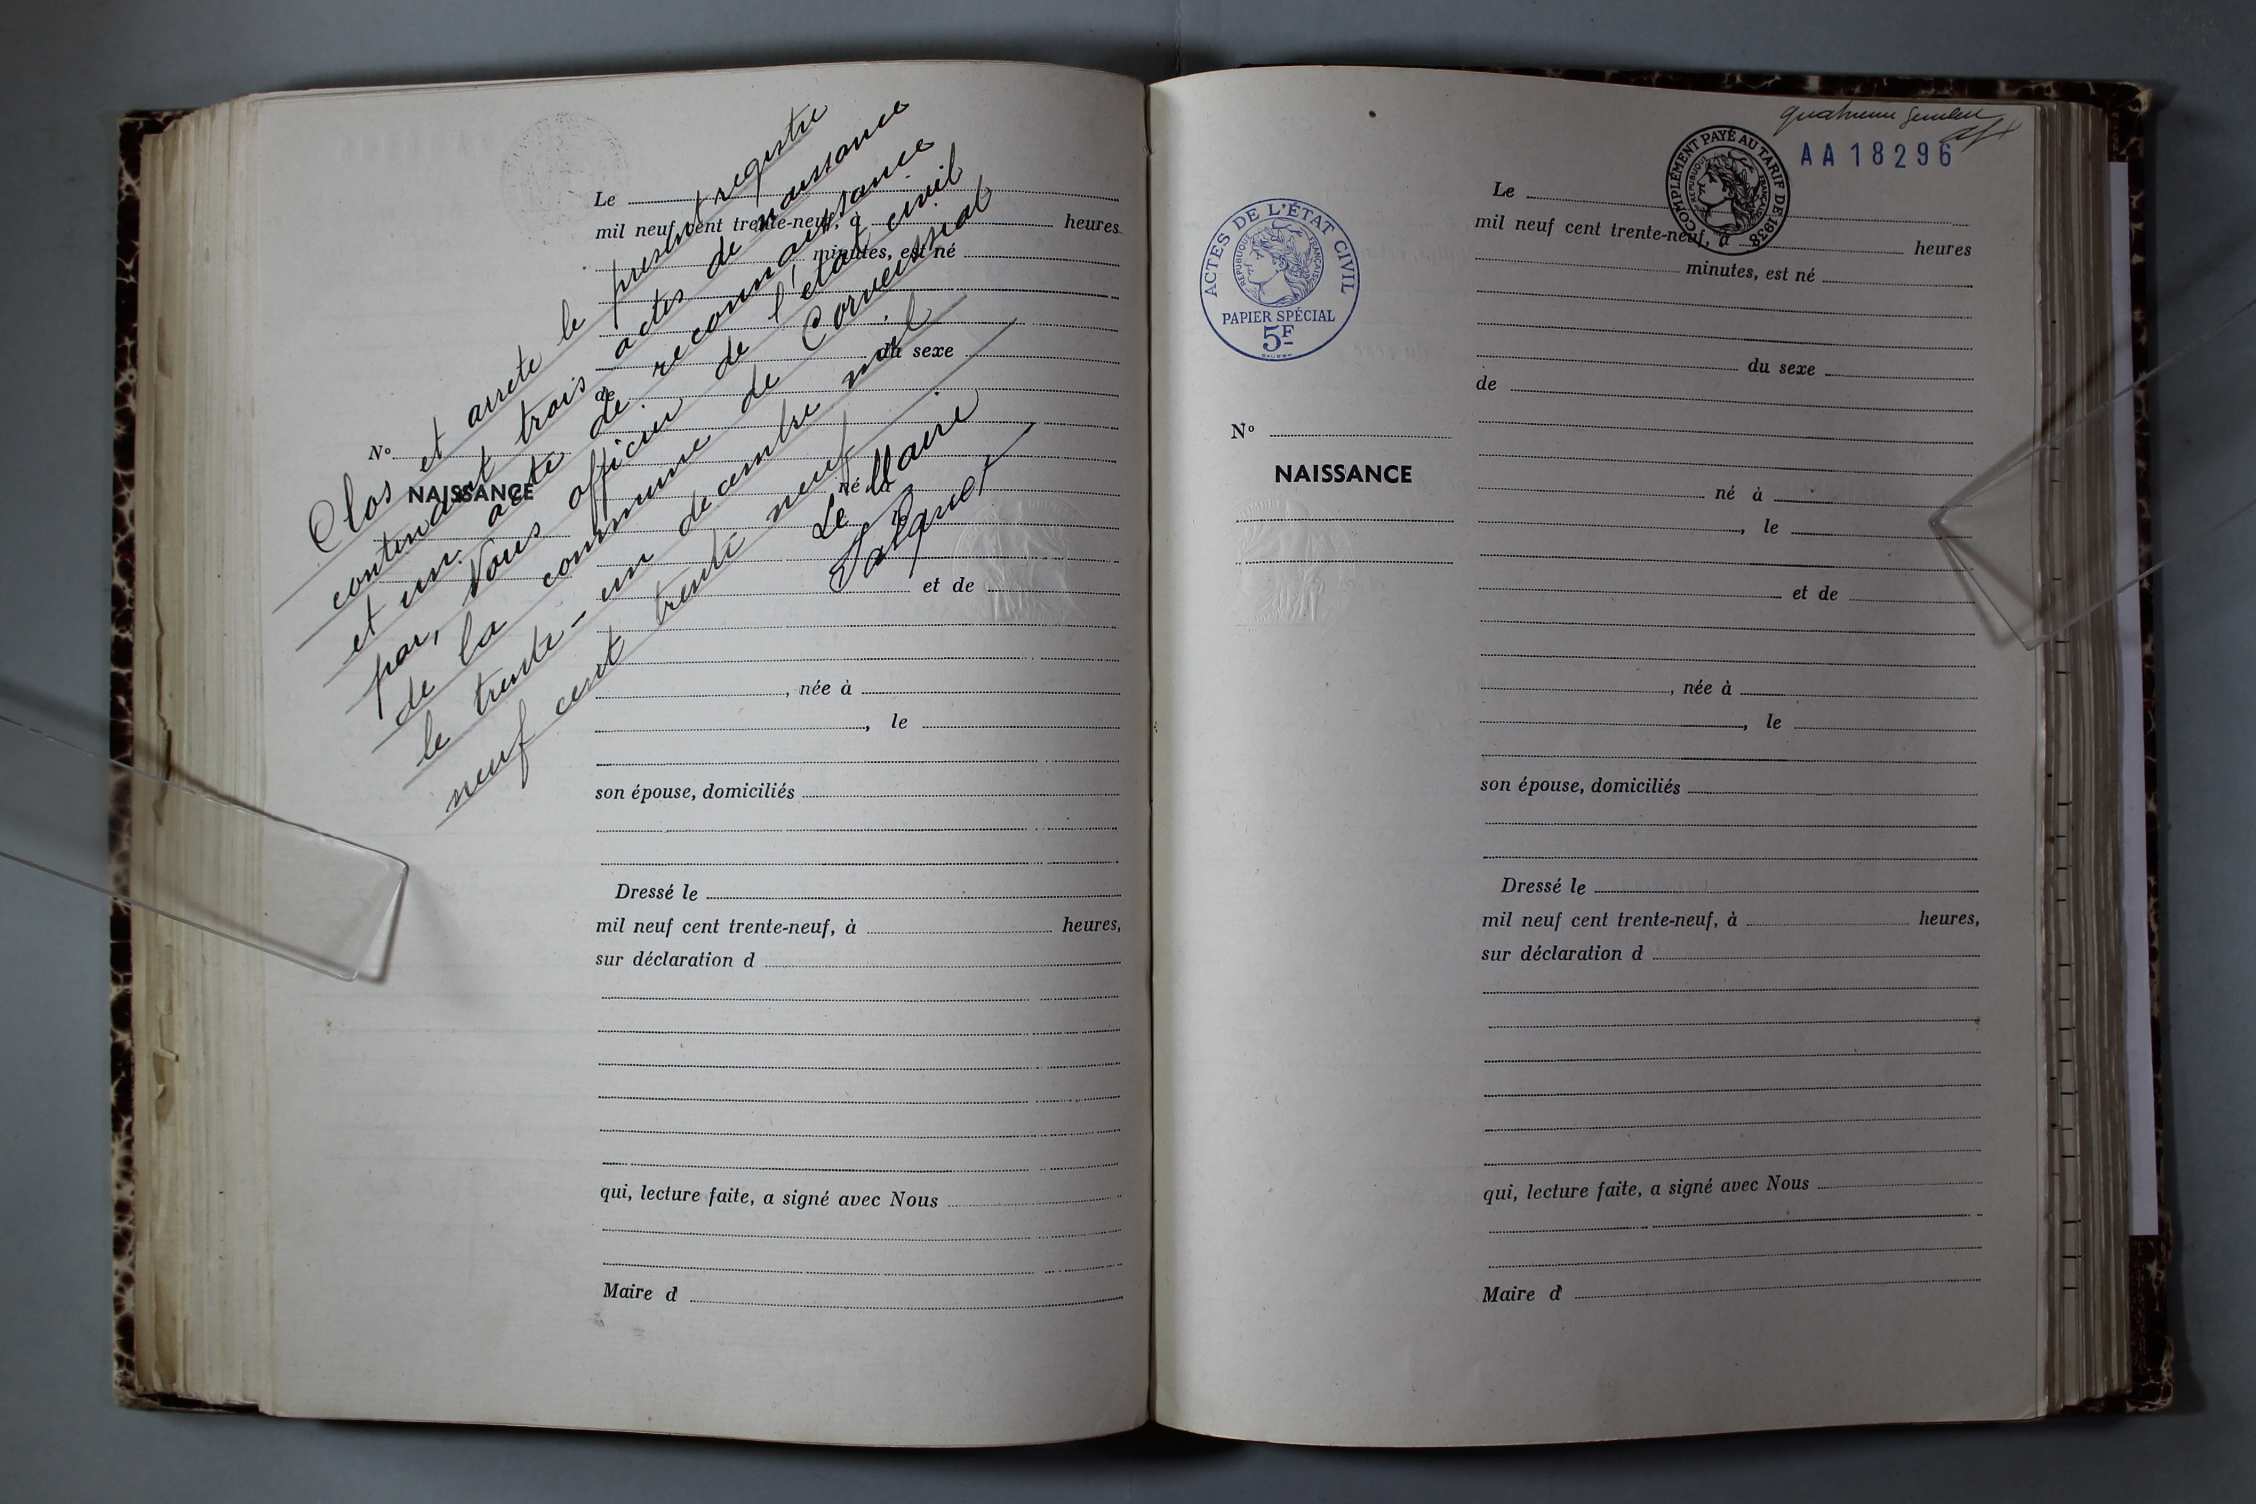 Le
mil neuf cent trente-neuf, à heures
minutes, est né
du sexe
de
N°
NAISSANCE
né à
et de
, née à
, le
son épouse, domiciliés
Dressé le
mil neuf cent trente-neuf, à heures,
sur déclaration d
qui, lecture faite, a signé avec Nous
Maire d
Clos et arrete le present registre
contenant trois actes de naissance
et un acte de reconnaissance
par, Nous officier de l'état civil
de la commune de
le trente-un decembre mil
neuf cent trente neuf
Le Maire
AA18296
COMPLÉMENT PAYÉ AU TARIF DE 1938
RÉPUBLIQUE FRANÇAISE
ACTES DE L'ÉTAT CIVIL
RÉPUBLIQUE FRANÇAISE
PAPIER SPÉCIAL
5F
Le
mil neuf cent trente-neuf, à heures
minutes, est né
du sexe
de
N°
NAISSANCE
né à
, le
et de
, née à
, le
son épouse, domiciliés
Dressé le
mil neuf cent trente-neuf, à heures,
sur déclaration d
qui, lecture faite, a signé avec Nous
Maire d